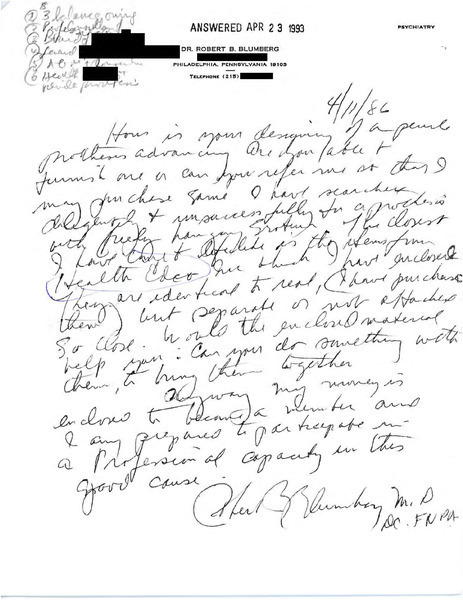 ANSWERED APR 23 1993
PSYCHIATRY
DR. ROBERT B. BLUMBERG
PHILADELPHIA, PENNSYLVANIA 19103
TELEPHONE (215)
4/11/86
How is your designing of a penile
prothesis advancing are you able to
furnish one or can you refer me so that I
may purchase same I have searched
diligently & unsuccessfully for a prothesis
with freely hanging scrotum. The closest
I have as the items from
Health Edco in which I have enclosed
They are identical to real, (I have purchased
them) but separate or not attached
So close. Would the enclosed material
help you? Can you do something with
them, to bring them together
Anyway my money is
enclosed to become a member and
I am prepared to participate in
a Professional capacity in this
good cause
Robert B Blumberg M.D